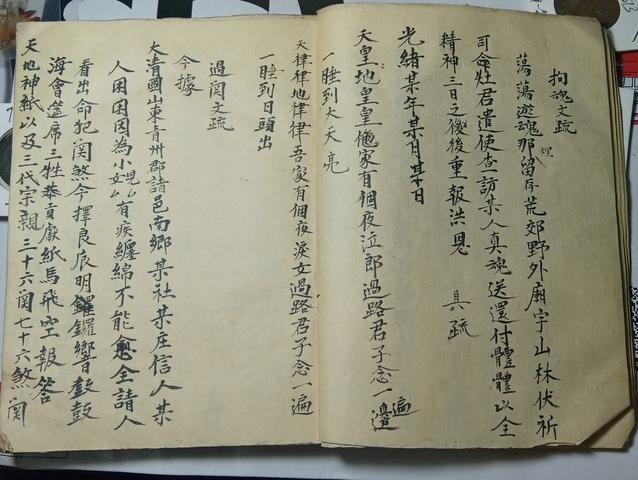 拘魂文疏
蕩蕩遊魂那裡留存荒郊野外廟宇山林伏祈
司命灶君遣使查訪某人真魂送還付體體以全
精神三日之後後重報洪恩 具疏
光緒某年某月某日
天皇地皇皇俺家有個夜泣郎過路君子念一遍
一睡到大天亮
天律律地律律吾家有個夜淚女過路君子念一遍
一睡到日頭出
過関文疏
今據
大清國山東青州郡諸邑南鄉某社某庄信人某
人因因因為小児女有疾纏綿不能愈全請人
看出命犯関煞今擇良辰明鑼鑼響鼓鼓
海會筵席三牲恭貢獻紙馬飛空報答
天地神紙以及三代宗親三十六関七十六煞関